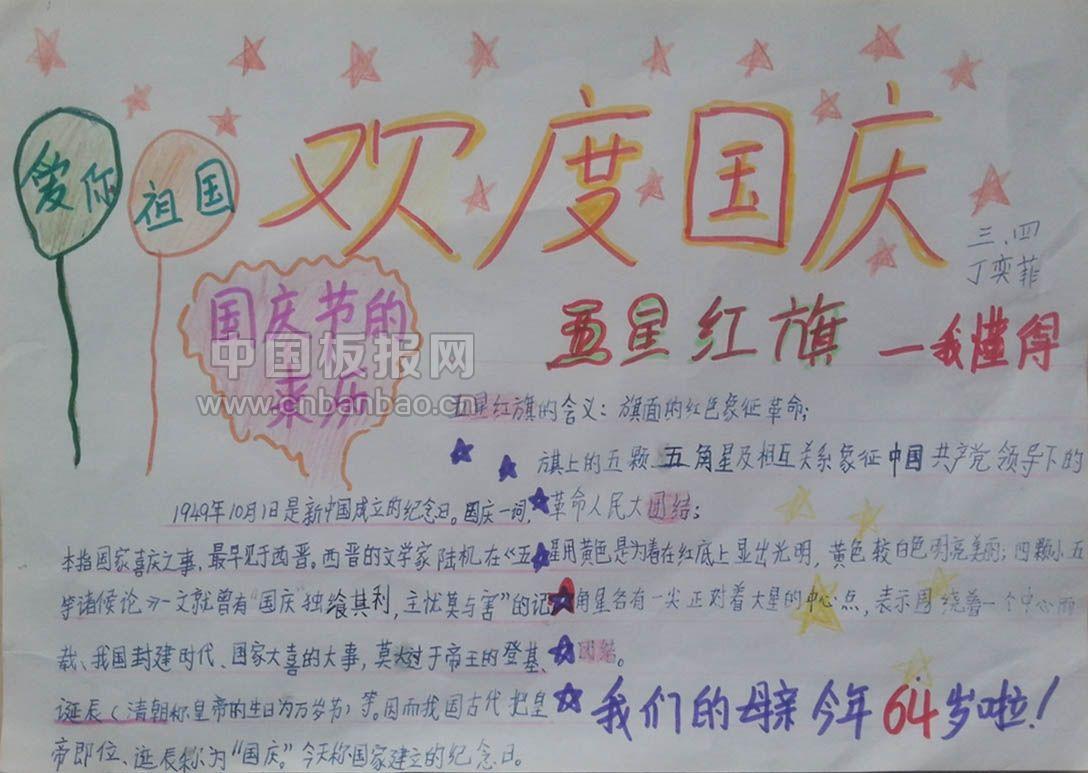 欢度国庆
爱你
祖国
三.四
丁奕菲
国庆节的
来乐
中国板报网
www.cnbanbao.cn
五星红旗 一我懂得
五星红旗的含义：旗面的红色象征革命；
旗上的五颗五角星及相互关系象征中国共产党领导下的
革命人民大团结；
星用黄色是为着在红底上显出光明，黄色较白色明亮美丽；四颗小五
角星各有一尖正对着大星的中心点，表示围绕着一个中心而
团结。
1949年10月1日是新中国成立的纪念日。国庆一词，
本指国家喜庆之事，最早见于西晋。西晋的文学家陆机在《五
等诸侯论》一文就曾有“国庆”独绘其利，主忧莫与害”的记
载、我国封建时代、国家大喜的大事，莫大过于帝王的登基、
诞辰（清朝称皇帝的生日为万岁节）等。因而我国古代把皇
帝即位、诞辰称为“国庆”。今天称国家建立的纪念日。
我们的母亲今年64岁啦！